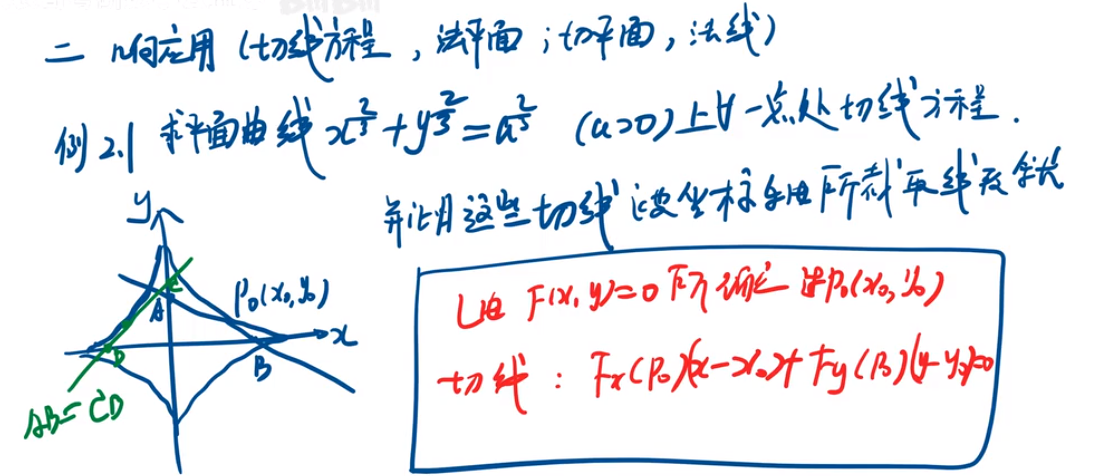 二 几何应用（切线方程，法平面；切平面，法线）
例2.1 求平面曲线 x^{2/3}+y^{2/3}=a^{2/3} (a>0)上∀一点处切线方程．
并证明这些切线被坐标轴所截取线段等长
y
A
C
P₀(x₀,y₀)
x
D
B
AB=CD
L由 F(x,y)=0 所确定 过P₀(x₀,y₀)
切线：Fx(P₀)(x-x₀)+Fy(P₀)(y-y₀)=0